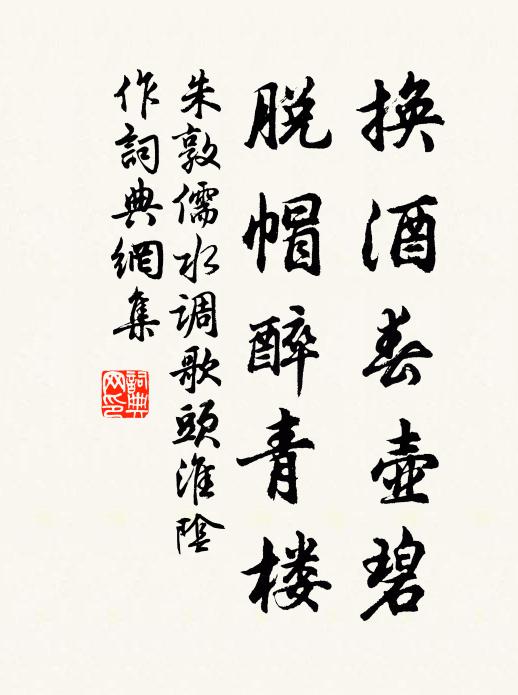 换酒春壶碧
脱帽醉青楼
朱敦儒水调歌頭淮陰
作詞典網集
詞典网印